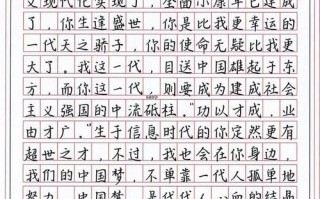 义现代化实现了，全面小康早已建成
了，你生逢盛世，你是比我更幸运的
一代天之骄子，你的使命无疑比我更
大了。我这一代，目送中国雄起于东
方，而你这一代，则要成为建成社会
主义强国的中流砥柱。“功以才成，业
由才广。”生于信息时代的你定然更有
超世之才，不过，我也会在你身边，
我们的中国梦，不单靠一代人孤单地
努力，中国梦，是代代人心血的结晶